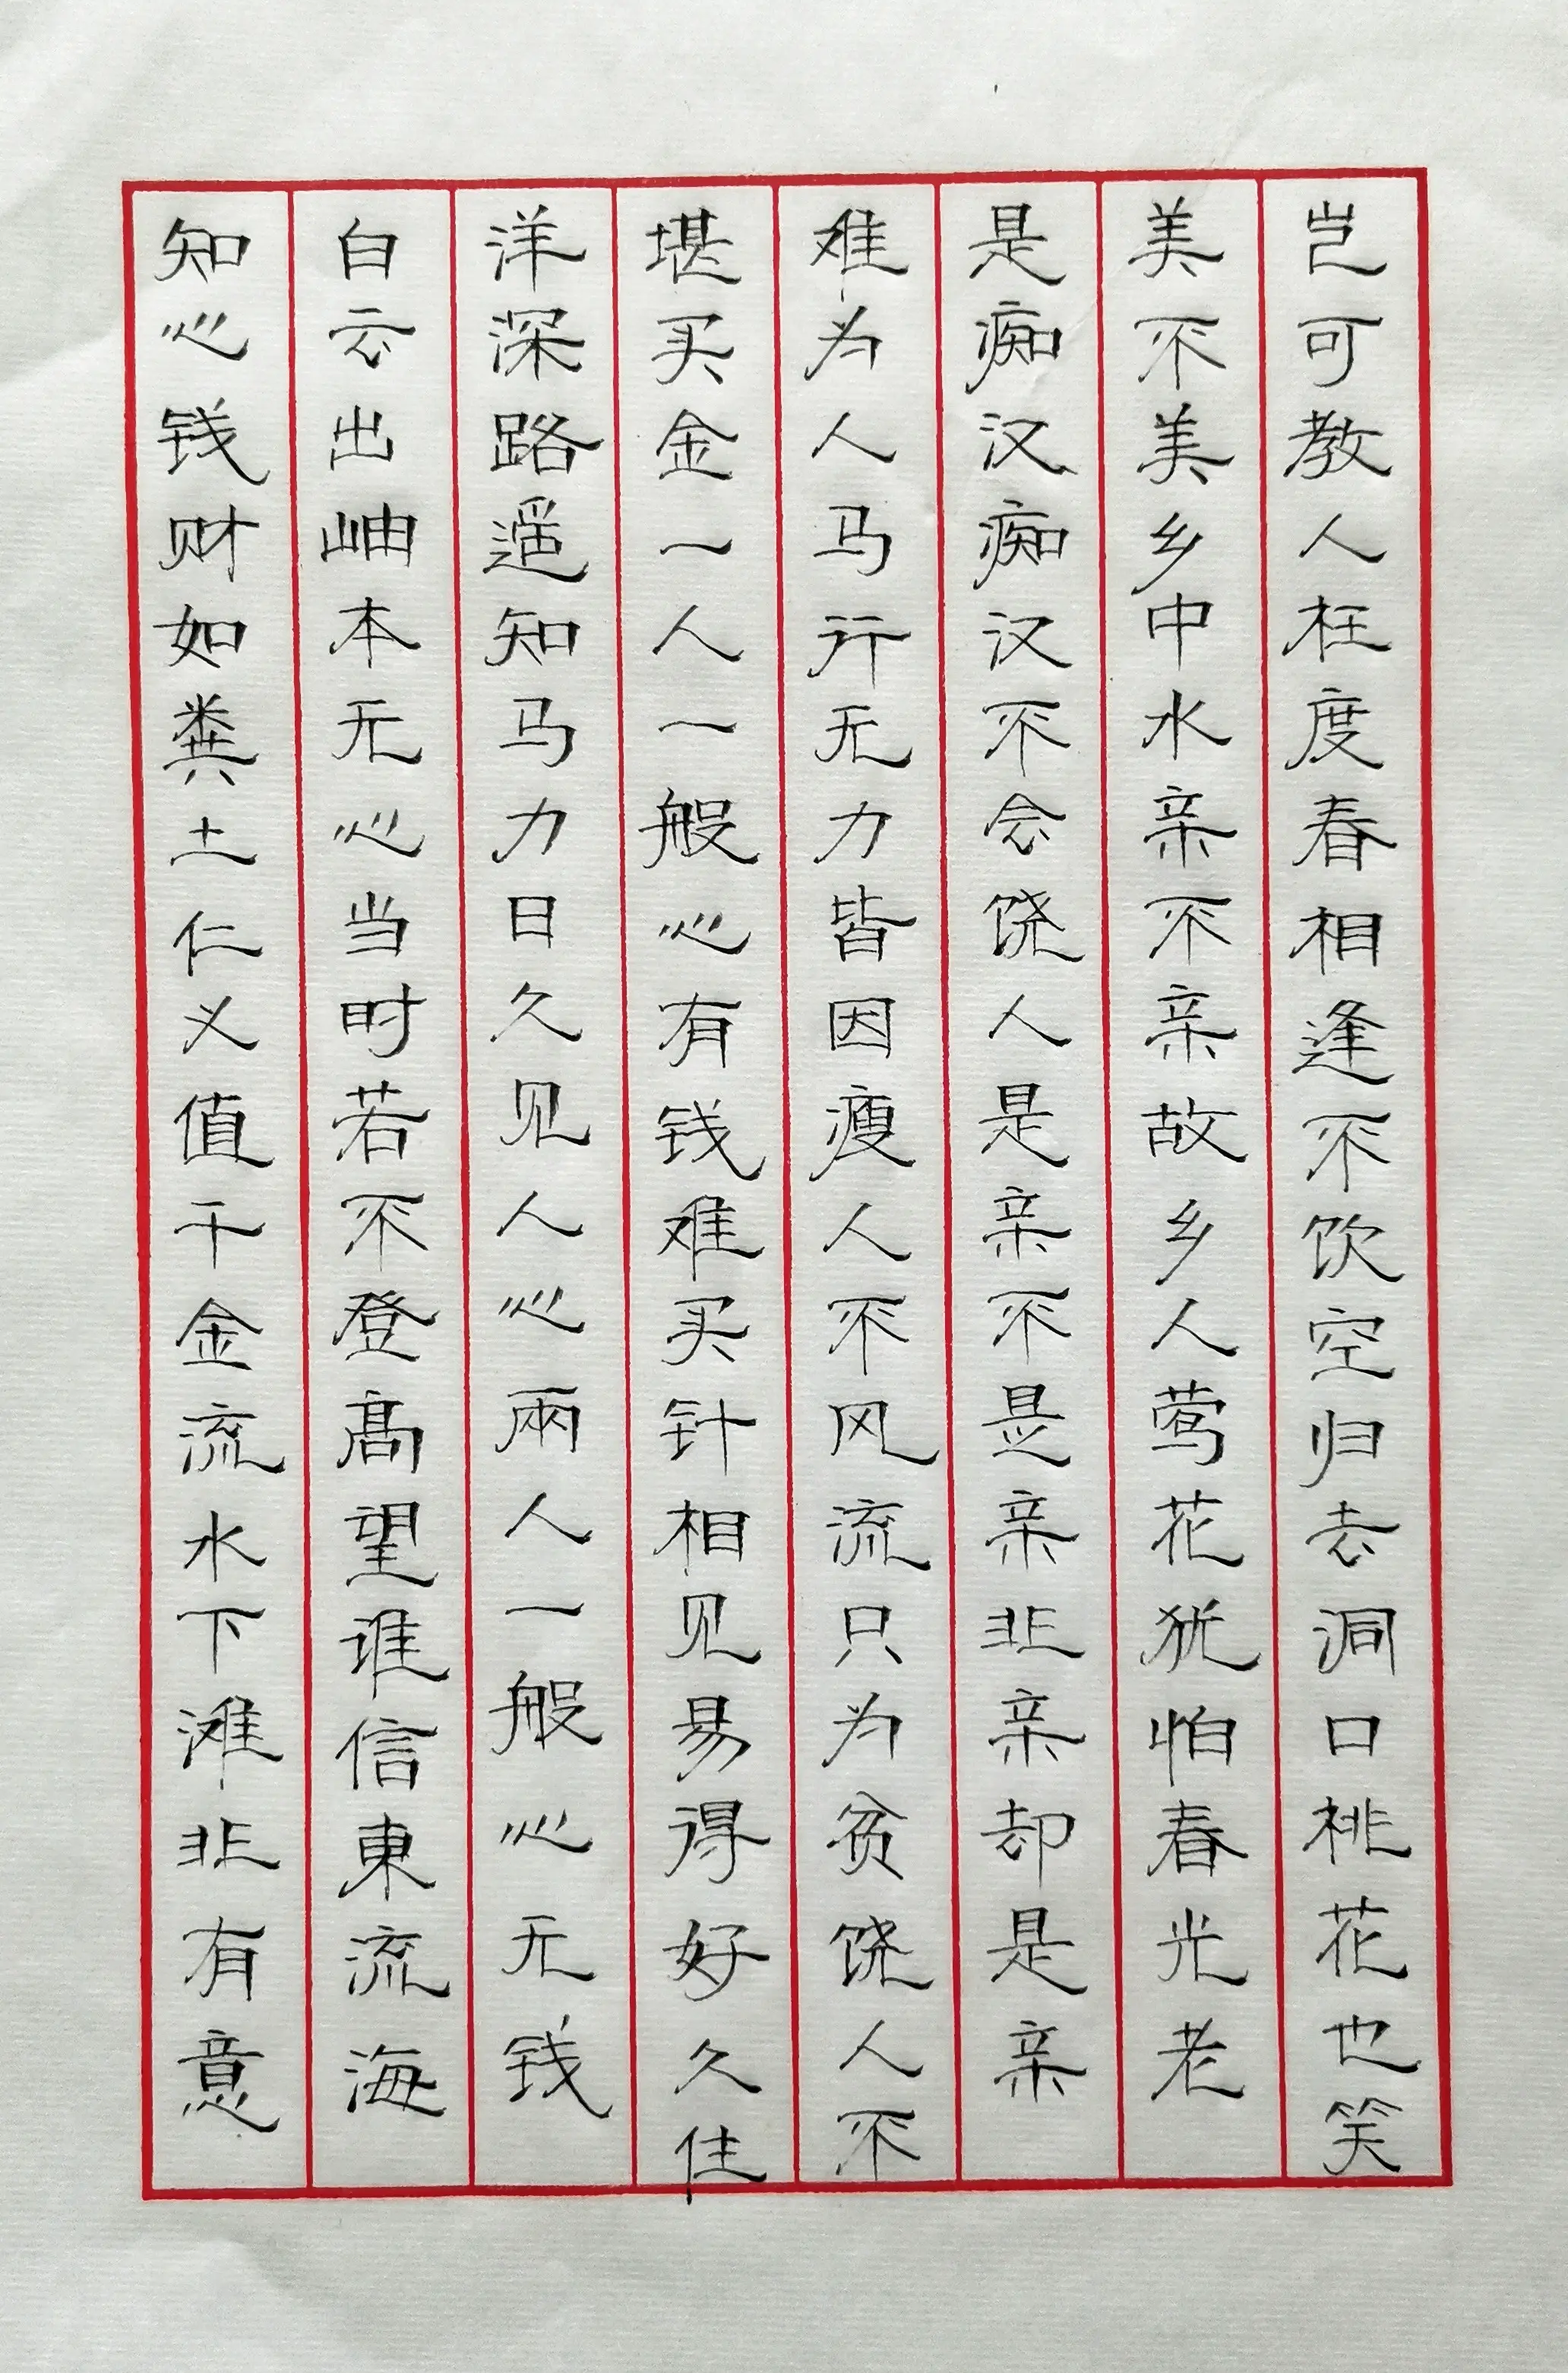 岂可教人枉度春相逢不饮空归去洞口桃花也笑
美不美乡中水亲不亲故乡人莺花犹怕春光老
是痴汉痴汉不会饶人是亲不是亲非亲却是亲
难为人马行无力皆因瘦人不风流只为贫饶人不
堪买金一人一般心有钱难买针相见易得好久住
洋深路遥知马力日久见人心兩人一般心无钱
白云出岫本无心当时若不登髙望谁信東流海
知心钱财如粪土仁义值千金流水下滩非有意